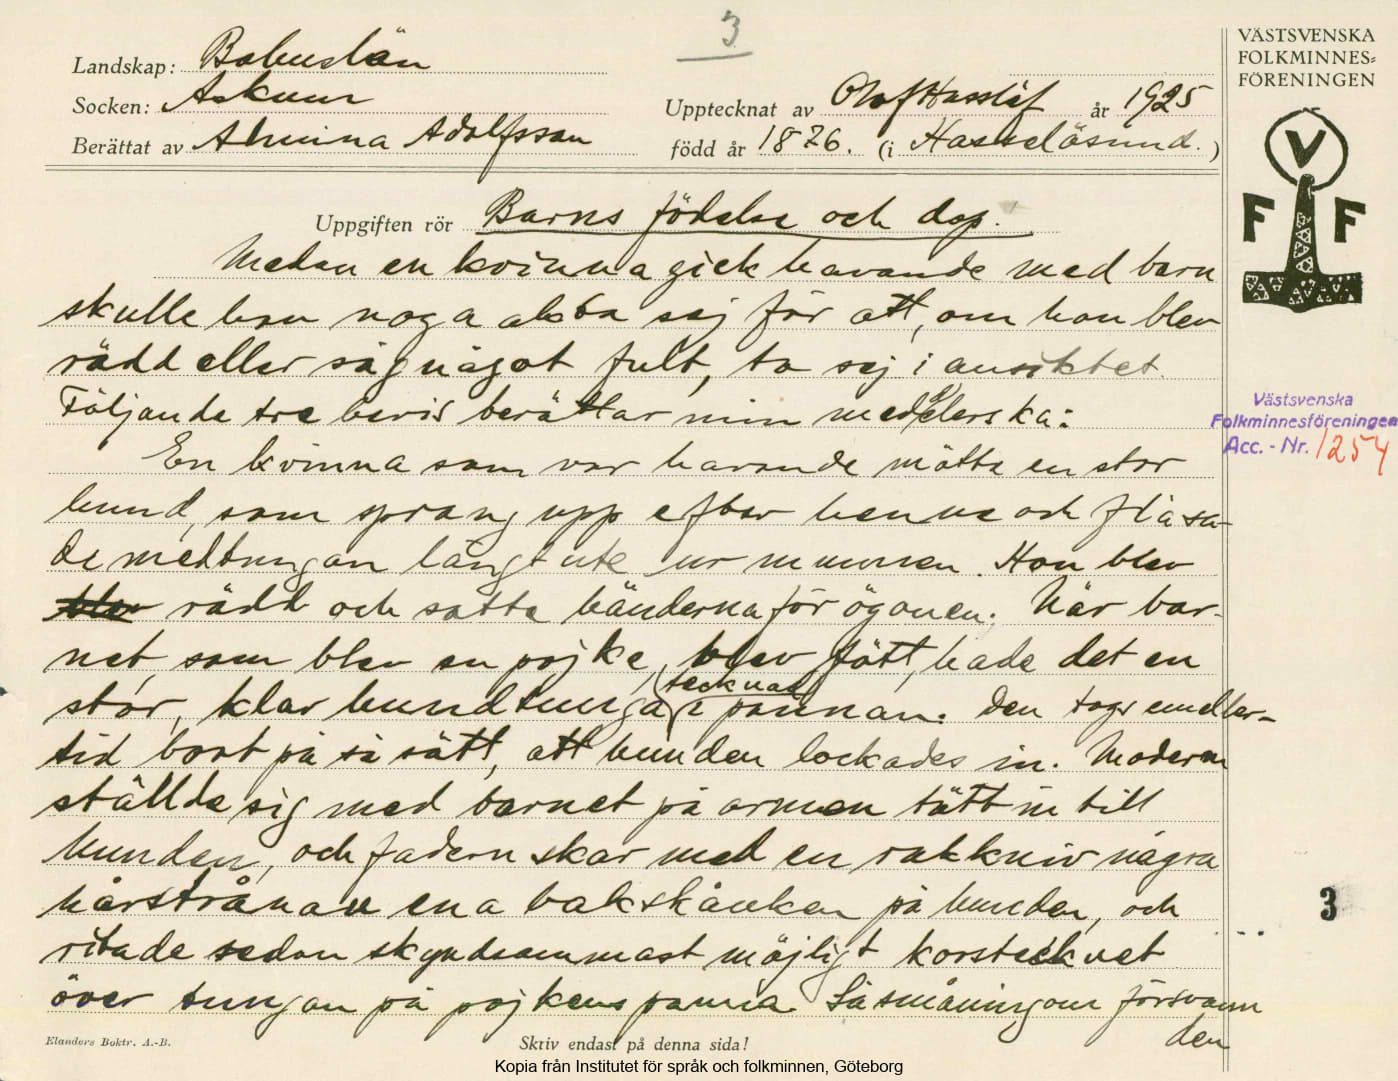 3
Landskap: Bohuslän
Socken: Askum
Berättat av Almina Adolfsson
Upptecknat av Olof Hasslöf år 1925
född år 1876. (i Hasselösund.)
VÄSTSVENSKA
FOLKMINNES=
FÖRENINGEN
V
F F
Uppgiften rör Barns födelse och dop.
Medan en kvinna gick havande med barn
skulle hon noga akta sej för att, om hon blev
rädd eller såg något fult, ta sej i ansiktet.
Följande tre bevis berättar min meddelerska:
En kvinna som var havande mötte en stor
hund, som sprang upp efter henne och flåsa-
de med tungan långt ute ur munnen. Hon blev
blev rädd och satte händerna för ögonen. När bar-
net, som blev en pojke, blev fött, hade det en
stor, klar hundtunga tecknad i pannan. Den togs emeller-
tid bort på så sätt, att hunden lockades in. Modern
ställde sig med barnet på armen tätt in till
hunden, och fadern skar med en rakkniv några
hårstrån av ena bakskånken på hunden, och
ritade sedan skyndsammast möjligt korstecknet
över tungan på pojkens panna. Så småningom försvann
den
Västsvenska
Folkminnesföreningen
Acc. - Nr. 1254
3
Elanders Boktr. A.-B.
Skriv endast på denna sida!
Kopia från Institutet för språk och folkminnen, Göteborg